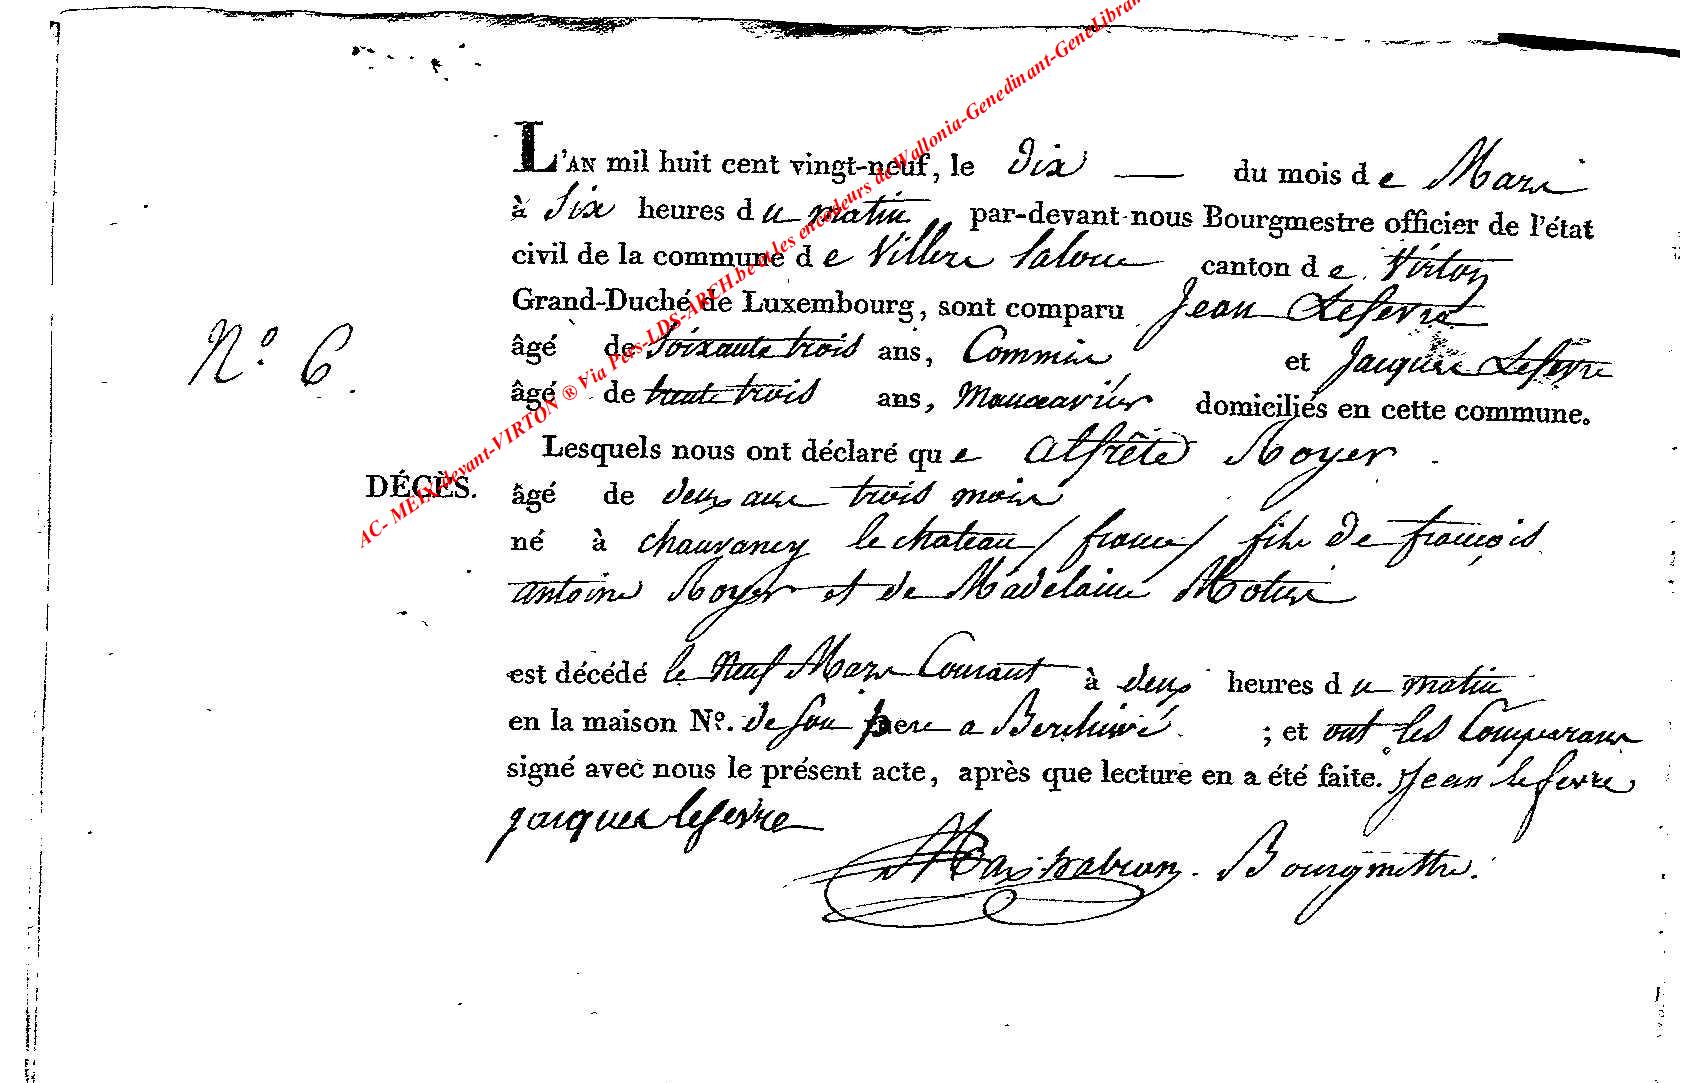 L'AN mil huit cent vingt-neuf, le Dix — du mois de Mars
à Six heures du matin par-devant nous Bourgmestre officier de l'état
civil de la commune de Villers la loue canton de Virton
Grand-Duché de Luxembourg, sont comparu Jean Lefevre
âgé de Soixante trois ans, Commis et Jacques Lefevre
N° 6.
âgé de trente trois ans, domiciliés en cette commune.
Lesquels nous ont déclaré que Royer
DÉCÈS.
âgé de deux ans trois mois
né à chauvancy le chateau / france / fils de françois
antoine Royer et de Madelaine
est décédé le Neuf Mars Courant à deux heures du matin
en la maison N°. de son pere a Berchiwé ; et ont les Comparans
signé avec nous le présent acte, après que lecture en a été faite. Jean lefevre
jacques lefevre
Bourgmettre.
AC- MEIX-devant-VIRTON ® Via Pers-LDS-ARCH.be et les encodeurs de Wallonia-Genedinant-GeneLibran